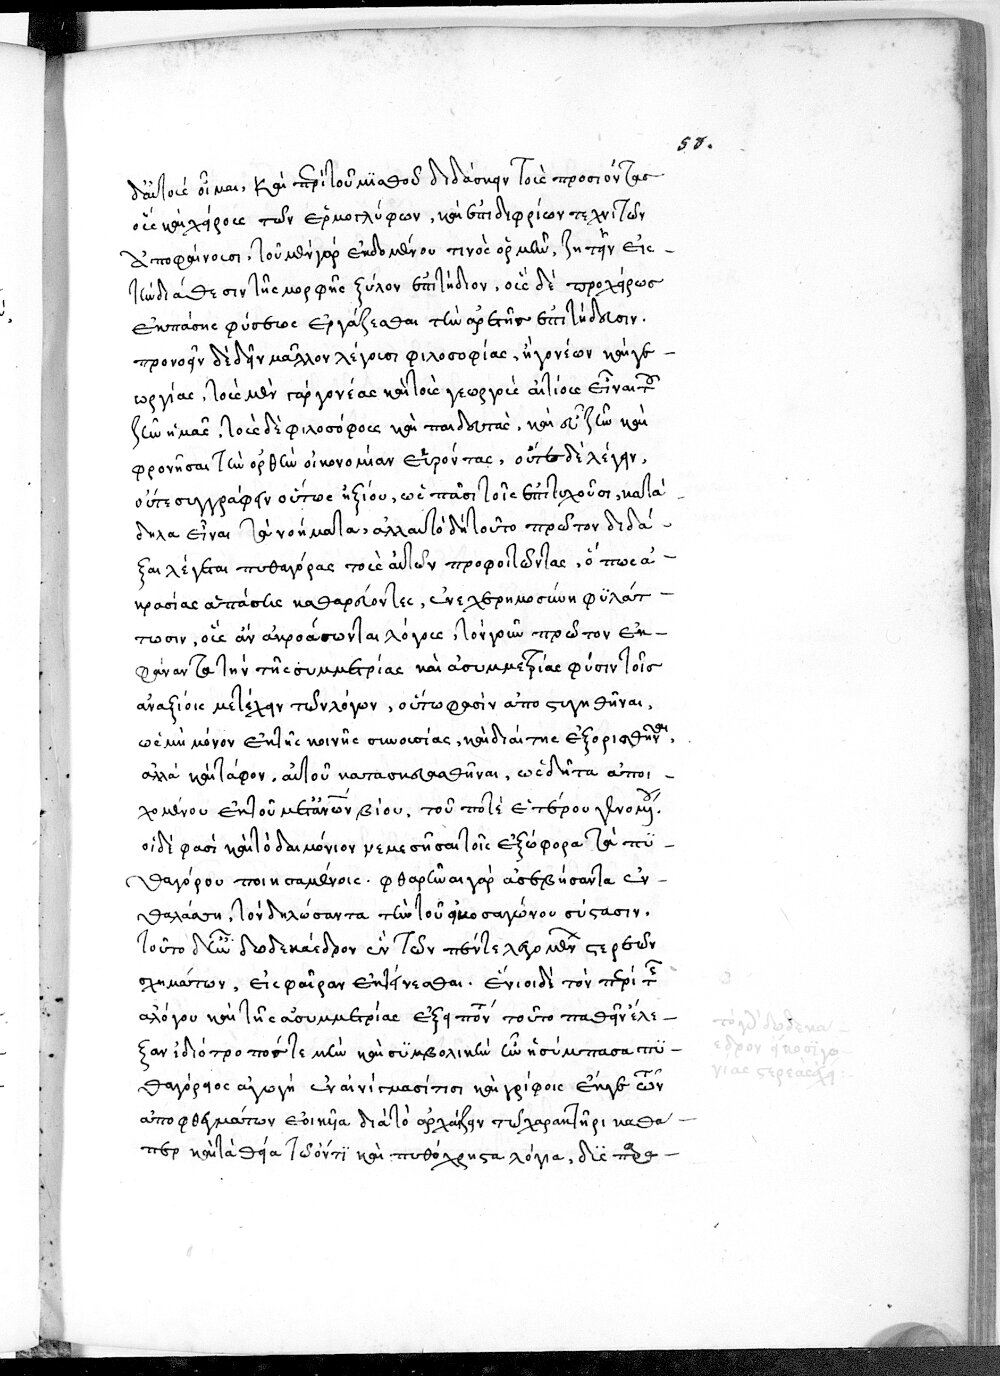 58.
δ' αὐτοὺς οἶμαι, καὶ περὶ τοῦ μισθοῦ διδάσκειν τοὺς προσιόντας
οὓς καὶ χείρους τῶν ἑρμογλύφων, καὶ ἐπιδιφρίων τεχνιτῶν
ἀποφαίνουσι, τοῦ μὲν γὰρ ἐκδομένου τινὸς ἑρμῆν, ζητεῖν εἰς
τὴν διάθεσιν τῆς μορφῆς ξύλον ἐπιτήδειον, οὓς δὲ προχείρως
ἐκ πάσης φύσεως ἐργάζεσθαι τὴν ἀρετῆς ἐπιτήδευσιν.
προνοεῖν δὲ δεῖν μᾶλλον λέγουσι φιλοσοφίας, ἢ γονέων καὶ γε
ωργίας, τοὺς μὲν γὰρ γονέας καὶ τοὺς γεωργοὺς αἰτίους εἶναι τοῦ
ζῆν ἡμᾶς, τοὺς δὲ φιλοσόφους καὶ παιδευτὰς, καὶ εὖ ζῆν καὶ
φρονῆσαι τὴν ὀρθὴν οἰκονομίαν εὑρόντας, οὔτε δὲ λέγειν,
οὔτε συγγράφειν οὕτως ἠξίου, ὡς πᾶσι τοῖς ἐπιτυχοῦσι, κατά
δηλα εἶναι τὰ νοήματα, ἀλλ' αὐτὸ δὴ τοῦτο πρῶτον διδά
ξαι λέγεται πυθαγόρας τοὺς αὐτῶν προφοιτῶντας, ὅπως ἀ
κρασίας ἁπάσης καθαρεύοντες, ἐν ἐχερημοσύνη φυλάτ
τωσιν, οὓς ἂν ἀκροάσωνται λόγους, τὸν γοῦν πρῶτον ἐκ
φάναντα τὴν τῆς συμμετρίας καὶ ἀσυμμετρίας φύσιν τοῖς
ἀναξίοις μετέχειν τῶν λόγων, οὕτω φασὶν ἀποστυγηθῆναι,
ὡς μὴ μόνον ἐκ τῆς κοινῆς συνουσίας, καὶ διαίτης ἐξορισθῆναι,
ἀλλὰ καὶ τάφον, αὐτοῦ κατασκευασθῆναι, ὡς δῆτα ἀποι
χομένου ἐκ τοῦ μετ' ἀνθρώπων βίου, τοῦ ποτὲ ἑτέρου γενομένου.
οἱ δέ φασὶ καὶ τὸ δαιμόνιον νεμεσῆσαι τοῖς ἐξώφορα τὰ πυ
θαγόρου ποιησαμένοις. φθαρῆναι γὰρ ἀσεβήσαντα ἐν
θαλάσση, τὸν δηλώσαντα τὴν τοῦ εἰκοσαγώνου σύστασιν.
τοῦτο δ' ἦν δωδεκάεδρον ἓν τῶν πέντε λεγομένων στερεῶν
σχημάτων, εἰς φαῖραν ἐκτείνεσθαι. ἔνιοι δὲ τὸν περὶ τῆς
ἀλόγου καὶ τῆς ἀσυμμετρίας ἐξειπόντα τοῦτο παθεῖν ἔλε
ξαν ἰδιότροπός τε μὴν καὶ συμβολικὴ ἦν ἡ σύμπασα πυ
θαγόρειος ἀγωγὴ ἐν αἰνίγμασί τισι καὶ γρίφοις ἔκ γε τῶν
ἀποφθεγμάτων ἐοικυῖα διὰ τὸ ἀρχαΐζειν τῷ χαρακτῆρι καθά
περ καὶ τὰ θεῖα τῷ ὄντι καὶ πυθόχρηστα λόγια,